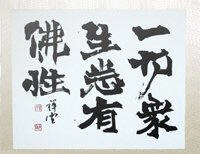 一切衆
生悉有
佛性